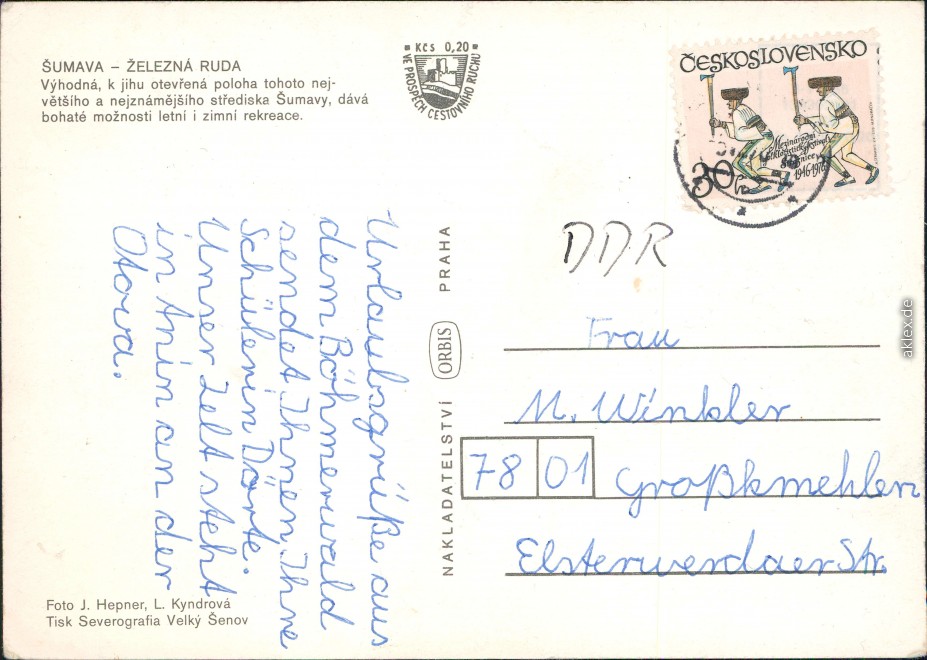 ŠUMAVA – ŽELEZNÁ RUDA
Výhodná, k jihu otevřená poloha tohoto nej-
většího a nejznámějšího střediska Šumavy, dává
bohaté možnosti letní i zimní rekreace.
Kčs 0,20
VE PROSPĚCH CESTOVNÍHO RUCHU
ČESKOSLOVENSKO
Mezinárodní
folkloristický festival
Strážnice
1946-1976
30h
Urlaubsgrüße aus
dem Böhmerwald
sendet Ihnen Ihre
Schülerin Dörte.
Unser Zelt steht
in Anin an der
Otava.
NAKLADATELSTVÍ ORBIS PRAHA
DDR
Frau
M. Winkler
78 01 Großkmehlen
Elsterwerdaer Str.
Foto J. Hepner, L. Kyndrová
Tisk Severografia Velký Šenov
aklex.de